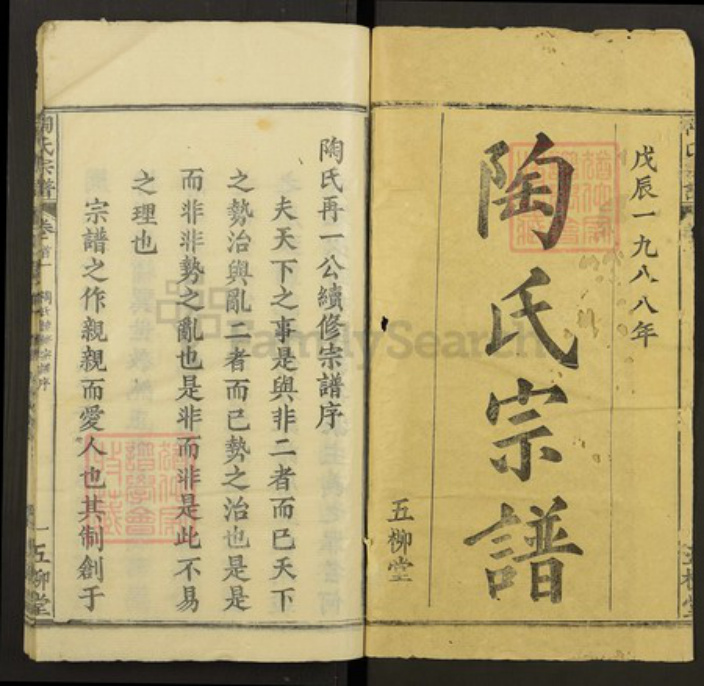 戊辰一九八八年
陶氏宗譜
五柳堂
陶氏再一公續修宗譜序
夫天下之事是與非二者而已天下
之勢治與亂二者而已勢之治也是是
而非非勢之亂也是非而非是此不易
之理也
宗譜之作親親而愛人也其制創于
陶氏宗譜
卷首
一五柳堂
FamilySearch